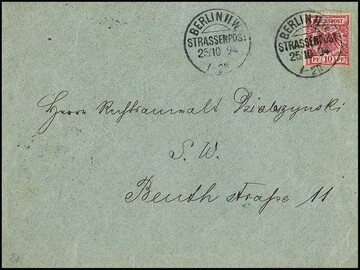 BERLIN W.
STRASSENPOST
25/10 94
1-2N
BERLIN W.
STRASSENPOST
25/10 94
1-2N
PF 10 PF
Herrn Rechtsanwalt Dzialoszynski
S. W.
Beuth straße 11